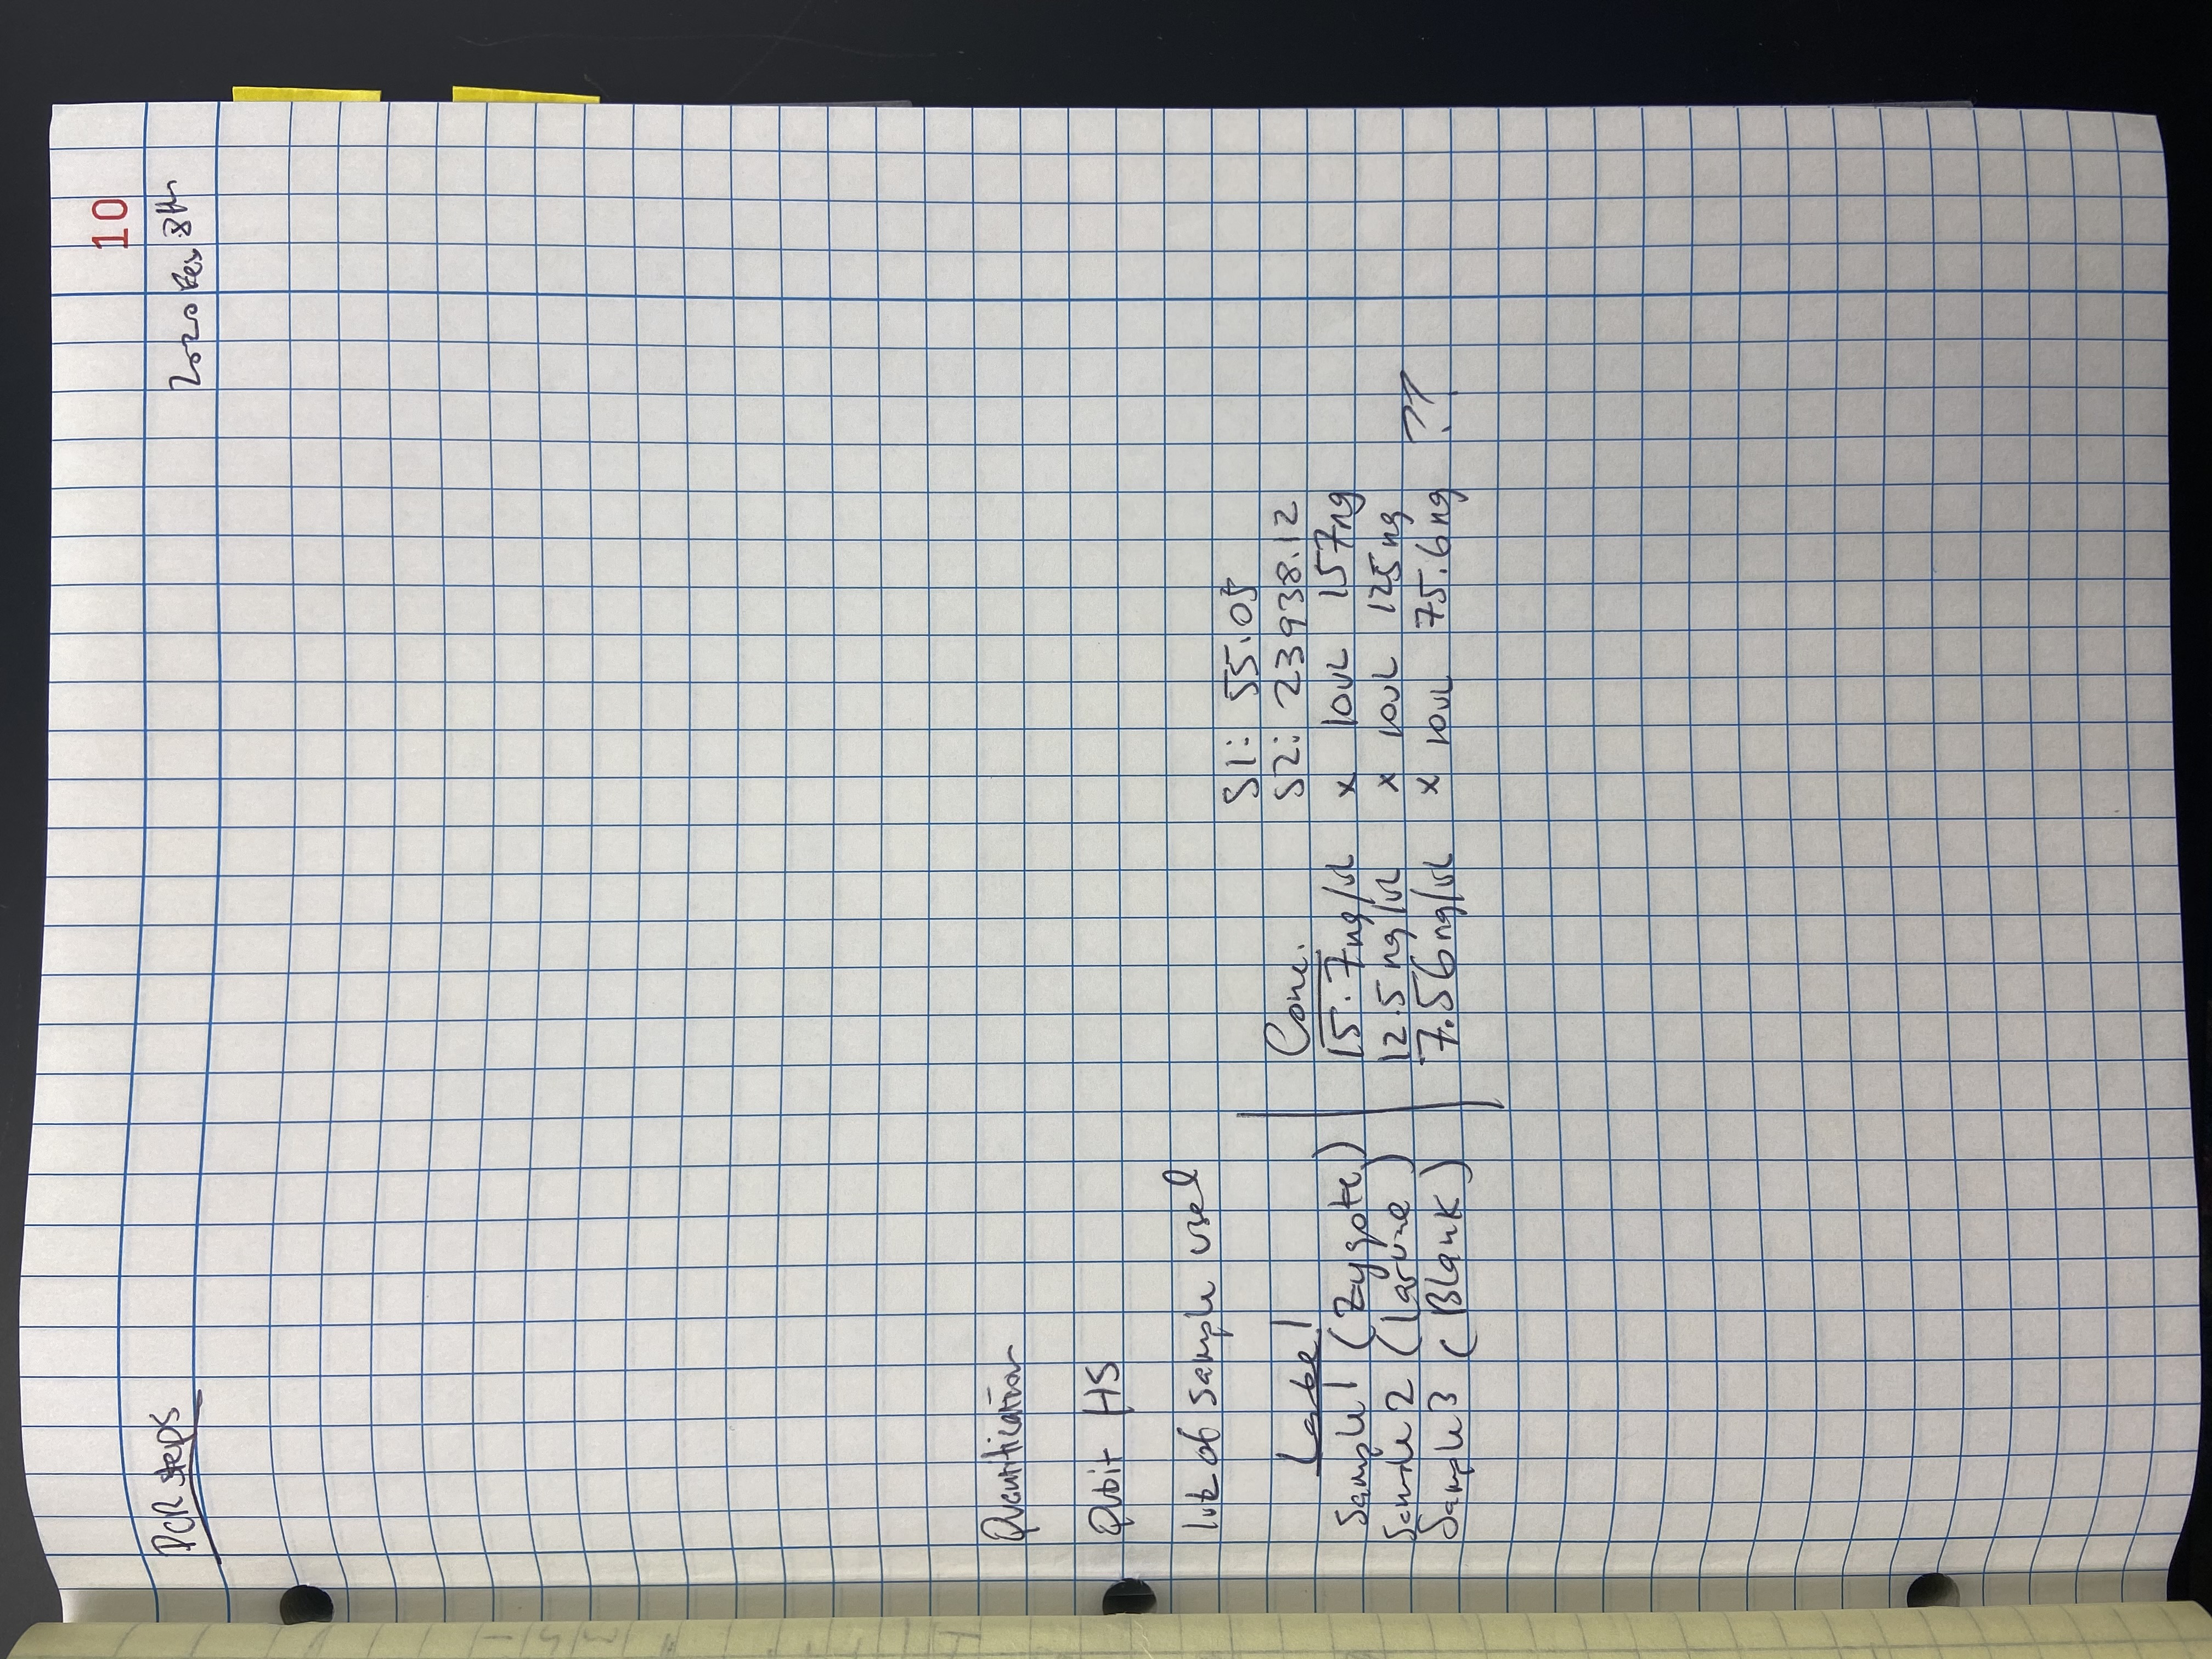 10
PCR steps
2020 Feb 8th
Quantification
Qubit HS
1uL of sample used
S1: 55.05
S2: 23938.12
Label Conc.
Sample 1 (Zygote) 15.7ng/uL x 10uL 157ng
Sample 2 (Larvae) 12.5 ng/uL x 10uL 125ng
Sample 3 (Blank) 7.56ng/uL x 10uL 75.6ng ??